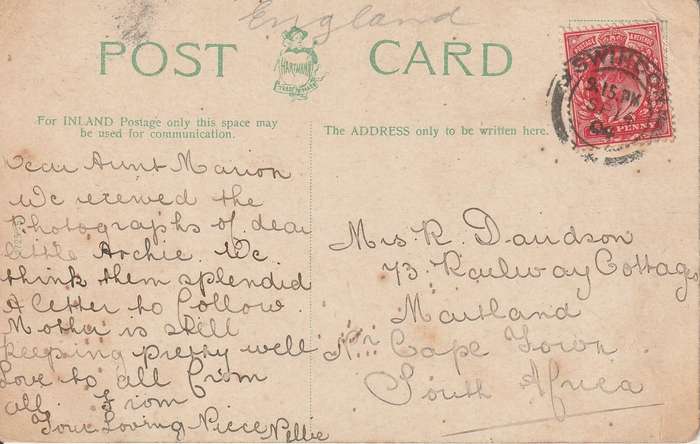 England
POST CARD
HARTMANN
TRADE MARK
SWINTON
9.15 PM
09
POSTAGE
ONE PENNY
For INLAND Postage only this space may
be used for communication.
The ADDRESS only to be written here.
Dear Aunt Marion
We received the
Photographs of dear
little Archie. We
think them splendid
A letter to follow.
Mother is still
keeping pretty well
Love to all from
all. From
Your Loving Niece Nellie
Mrs. R. Davidson
73. Railway Cottages
Maitland
Nr. Cape Town
South Africa